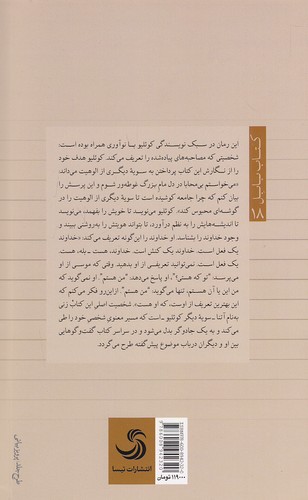 کتاب نیایش
۱۸
این رمان در سبک نویسندگی کوئلیو با نوآوری همراه بوده است:
شخصیتی که مصاحبه‌های پیاده‌شده را تعریف می‌کند. کوئلیو هدف خود
را از نگارش این کتاب پرداختن به سویهٔ دیگری از الوهیت می‌داند:
«می‌خواستم بی‌محابا در دل مامِ بزرگ غوطه‌ور شوم و این پرسش را
بیان کنم که چرا جامعه کوشیده است تا سویهٔ دیگری از الوهیت را در
گوشه‌ای محبوس کند». کوئلیو می‌گوید تا خویش را بفهمد، می‌نویسد
تا اندیشه‌هایش را به نظم درآورد، تا بتواند هویتش را به‌روشنی ببیند و
وجود خداوند را بشناسد. او خداوند را این‌گونه تعریف می‌کند: «خداوند
یک فعل است. خداوند یک کنش است. خداوند هست - بله، هست
یک فعل است. نمی‌توانید تعریفی از او بدهید. وقتی که موسی از او
می‌پرسد: "تو که هستی؟"، او پاسخ می‌دهد: "من هستم". او نمی‌گوید که
من این یا آن هستم، تنها می‌گوید: "من هستم". ازاین‌رو فکر می‌کنم که
این بهترین تعریف از اوست، که او هست». شخصیت اصلی این کتاب زنی
به‌نام آتنا - سویهٔ دیگر کوئلیو - است که مسیر معنوی شخصی خود را طی
می‌کند و به یک جادوگر بدل می‌شود و در سراسر کتاب گفت‌وگوهایی
بین او و دیگران درباب موضوع پیش‌گفته طرح می‌گردد
انتشارات تیسا
۱۱۹۰۰۰ تومان